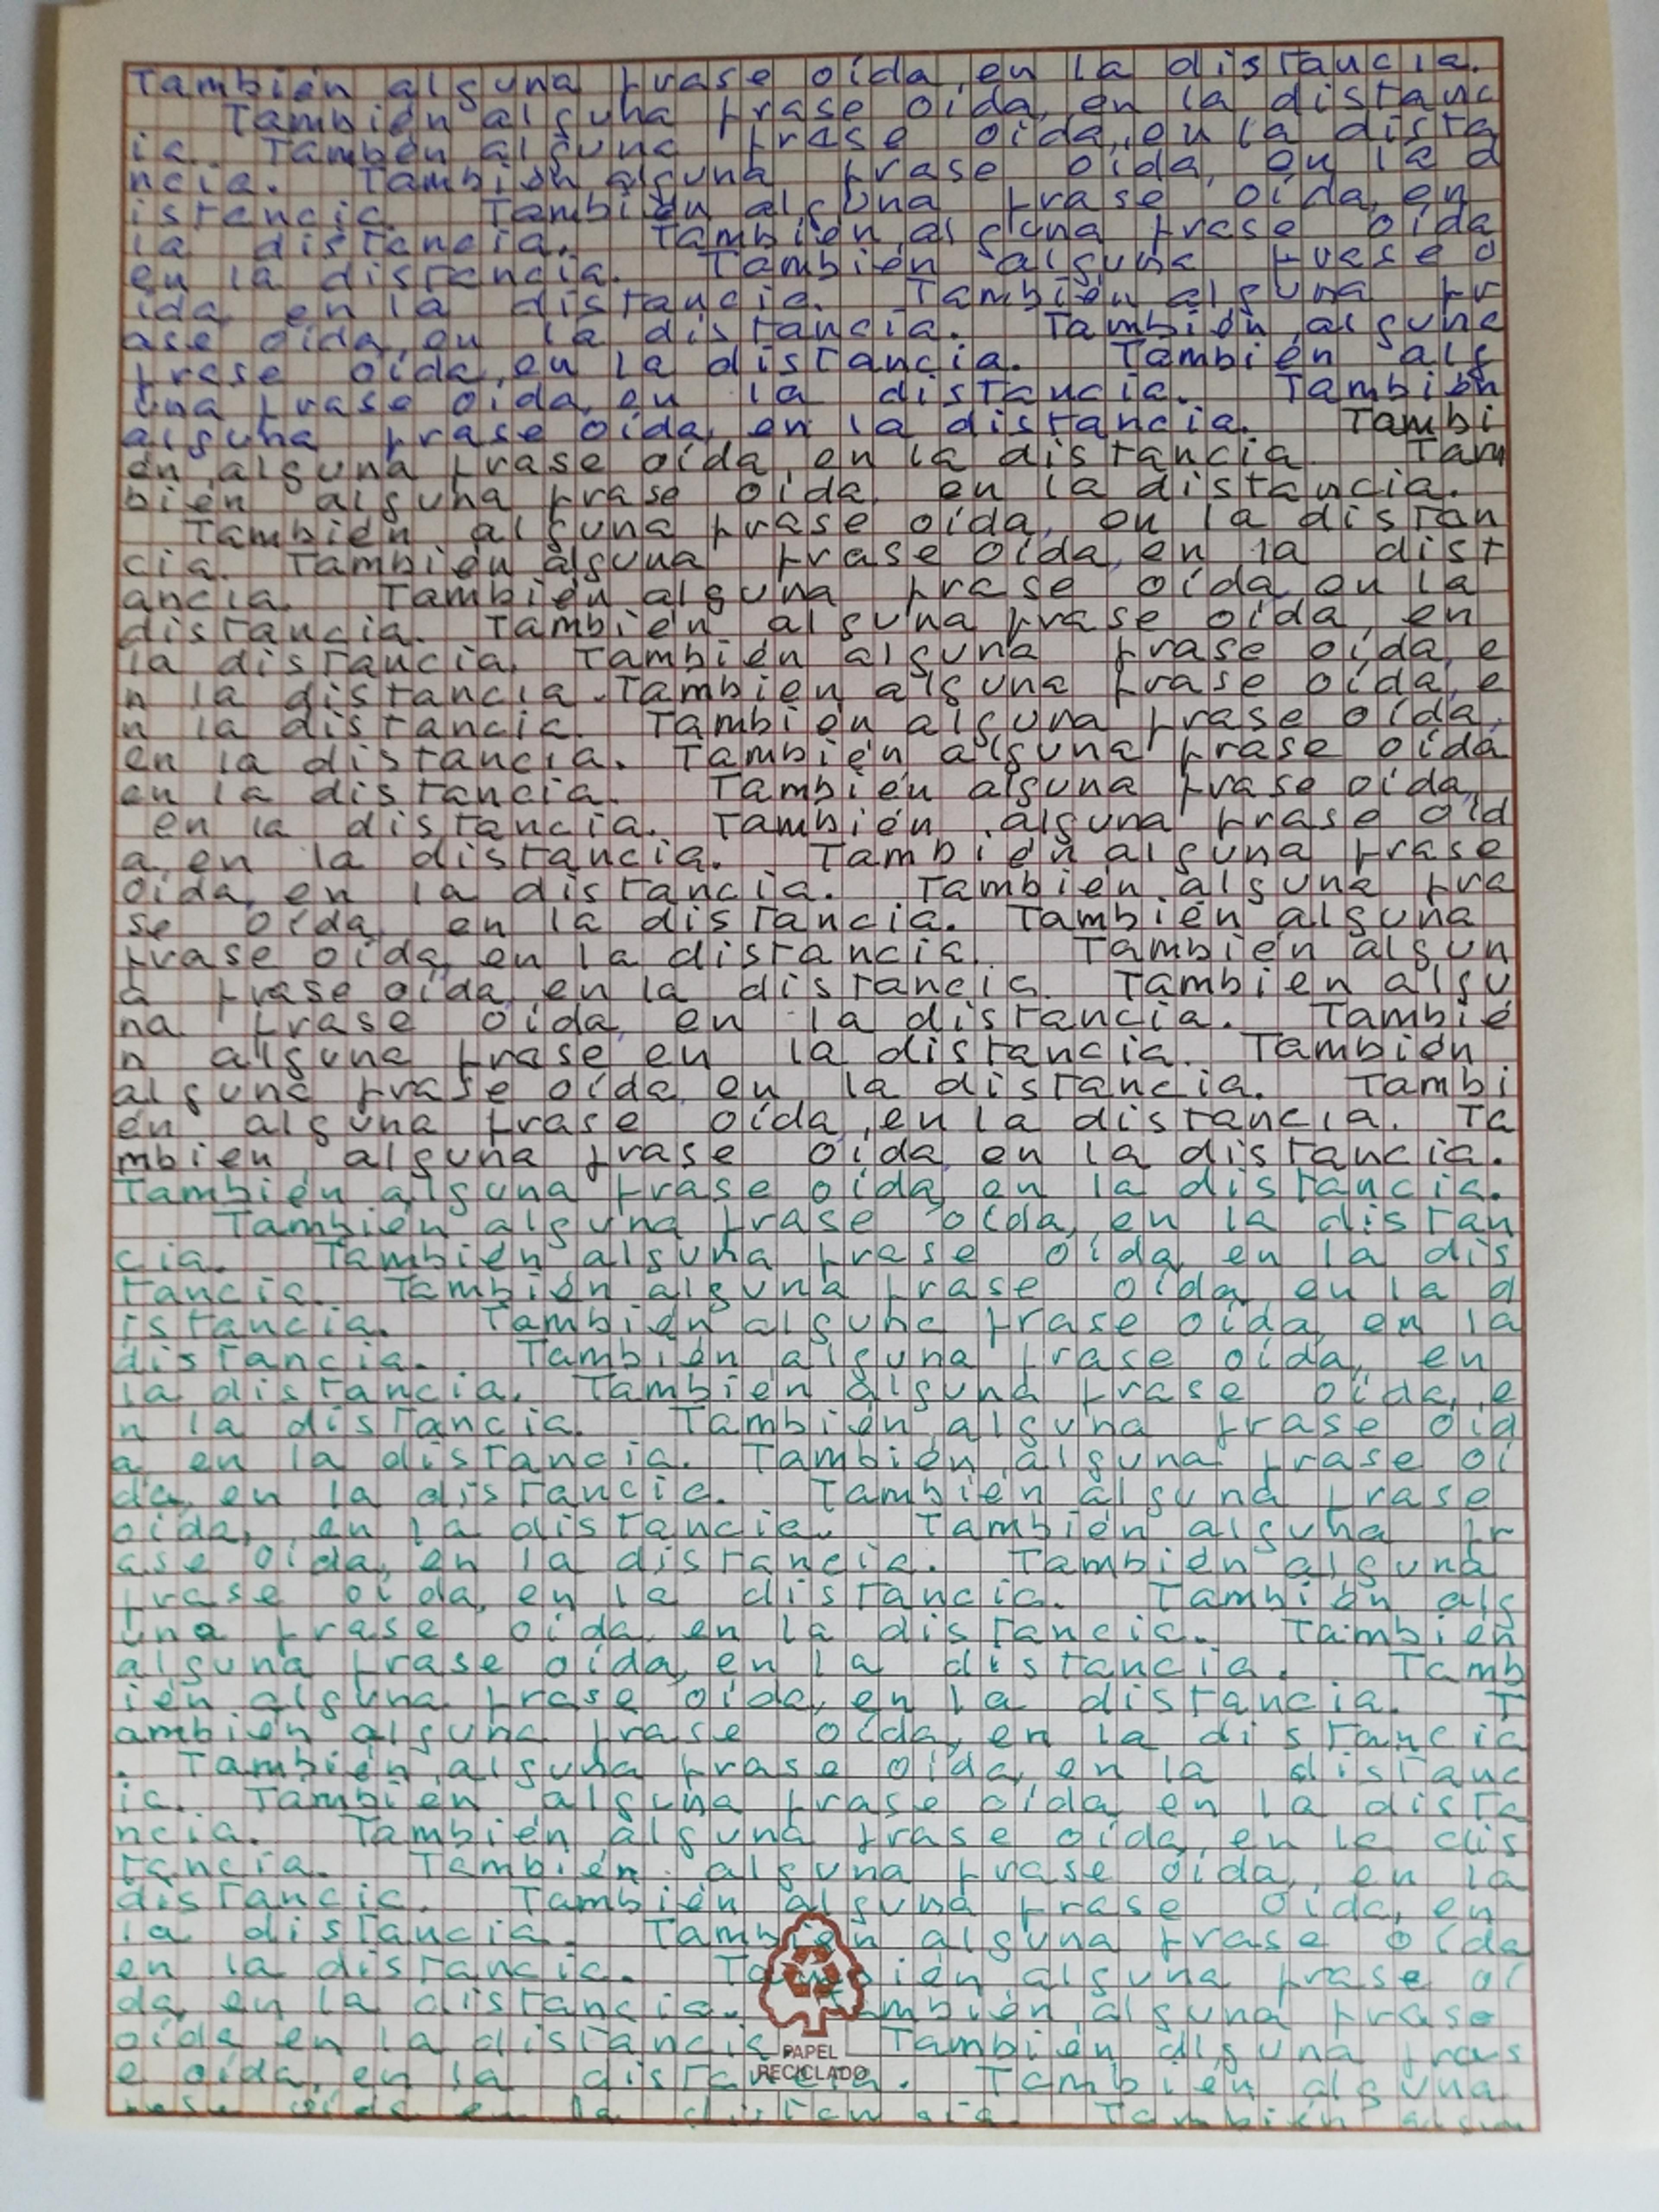 También alguna frase oída, en la distancia.
También alguna frase oída, en la distanc
ia. También alguna frase oída, en la dista
ncia. También alguna frase oída, en la d
istancia. También alguna frase oída, en
la distancia. También alguna frase oída
en la distancia. También alguna frase o
ída, en la distancia. También alguna fr
ase oída, en la distancia. También alguna
frase oída, en la distancia. También alg
una frase oída, en la distancia. También
alguna frase oída, en la distancia. Tambi
én alguna frase oída, en la distancia. Tam
bién alguna frase oída, en la distancia.
También alguna frase oída, en la distan
cia. También alguna frase oída, en la dist
ancia. También alguna frase oída, en la
distancia. También alguna frase oída, en
la distancia. También alguna frase oída, e
n la distancia. También alguna frase oída, e
n la distancia. También alguna frase oída,
en la distancia. También alguna frase oída
en la distancia. También alguna frase oída,
en la distancia. También alguna frase oíd
a, en la distancia. También alguna frase
oída, en la distancia. También alguna fra
se oída, en la distancia. También alguna
frase oída, en la distancia. También algun
a frase oída, en la distancia. También algu
na frase oída, en la distancia. Tambié
n alguna frase en la distancia. También
alguna frase oída, en la distancia. Tambi
én alguna frase oída, en la distancia. Ta
mbién alguna frase oída, en la distancia.
También alguna frase oída, en la distancia.
También alguna frase oída, en la distan
cia. También alguna frase oída, en la dis
tancia. También alguna frase oída, en la d
istancia. También alguna frase oída, en la
distancia. También alguna frase oída, en
la distancia. También alguna frase oída, e
n la distancia. También alguna frase oíd
a, en la distancia. También alguna frase oí
da, en la distancia. También alguna frase
oída, en la distancia. También alguna fr
ase oída, en la distancia. También alguna
frase oída, en la distancia. También alg
una frase oída, en la distancia. También
alguna frase oída, en la distancia. Tamb
ién alguna frase oída, en la distancia. T
ambién alguna frase oída, en la distancia
. También alguna frase oída, en la distanc
ia. También alguna frase oída, en la dista
ncia. También alguna frase oída, en la dis
tancia. También alguna frase oída, en la
distancia. También alguna frase oída, en
la distancia. También alguna frase oída
en la distancia. También alguna frase oí
da, en la distancia. También alguna frase
oída en la distancia. También alguna fras
PAPEL
e oída, en la distancia. También alguna
RECICLADO
oída en la distancia. También